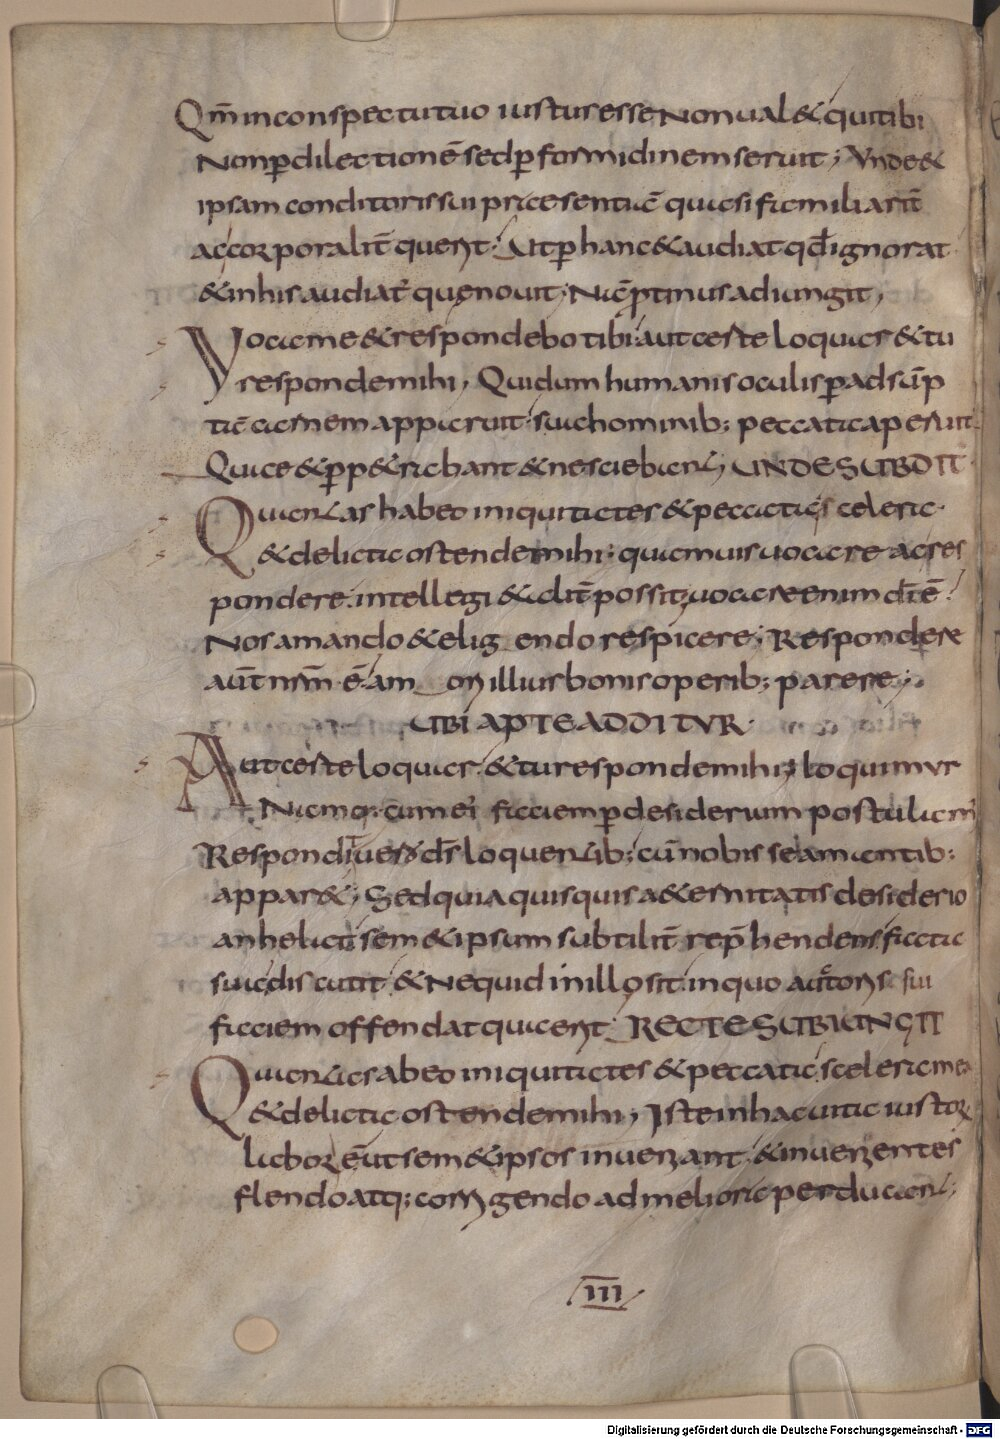 Qm̄ in conspectu tuo iustus esse non ual& qui tibi
Non ꝑ dilectionē sed ꝑ formidinem seruit; Vnde &
ipsam conditoris sui praesentiā quasi familiarit̄
ac corporalit̄ querit. Ut ꝑ hanc & audiat qd̄ ignorat
& in his audiat' que nouit; adiungit,
Voca me & respondebo tibi aut certe loquar & tu
responde mihi, Qui dum humanis oculis ꝑ adsūp
tā carnem apparuit sua hominib; peccata aperuit
Quae & ꝑp&rabant & nesciebant; UNDE SUBDIT
Quantas habeo iniquitates & peccata scelera
& delicta ostende mihi; quamuis uocare ac res
pondere intellegi & alit̄ possit; uocare enim dī ē
Nos amando & eligendo respicere; Respondere
aūt nrm̄ ē amoris illius bonis operib; parere;
UBI APTE ADDITVR.
Aut certe loquar & tu responde mihi; loquimur
Namq; cum ei' faciem ꝑ desiderium postulam'
Respondit uero ds̄ loquentib; cū nobis se amantib;
appar&; Sed quia quisquis a&ernitatis desiderio
anhelat sem&ipsum subtilit̄ rep̄hendens facta
sua discutit & Nequid in illo sit in quo auctoris sui
faciem offendat quaerit RECTE SUBIUNGIT
Quantas abeo iniquitates & peccata scelera mea
& delicta ostende mihi, Iste in hac uita iustoꝝ
laboꝝ ē ut sem&ipsos inueniant & inuenientes
flendo atq; corrigendo ad meliora perducant;
III
Digitalisierung gefördert durch die Deutsche Forschungsgemeinschaft - DFG